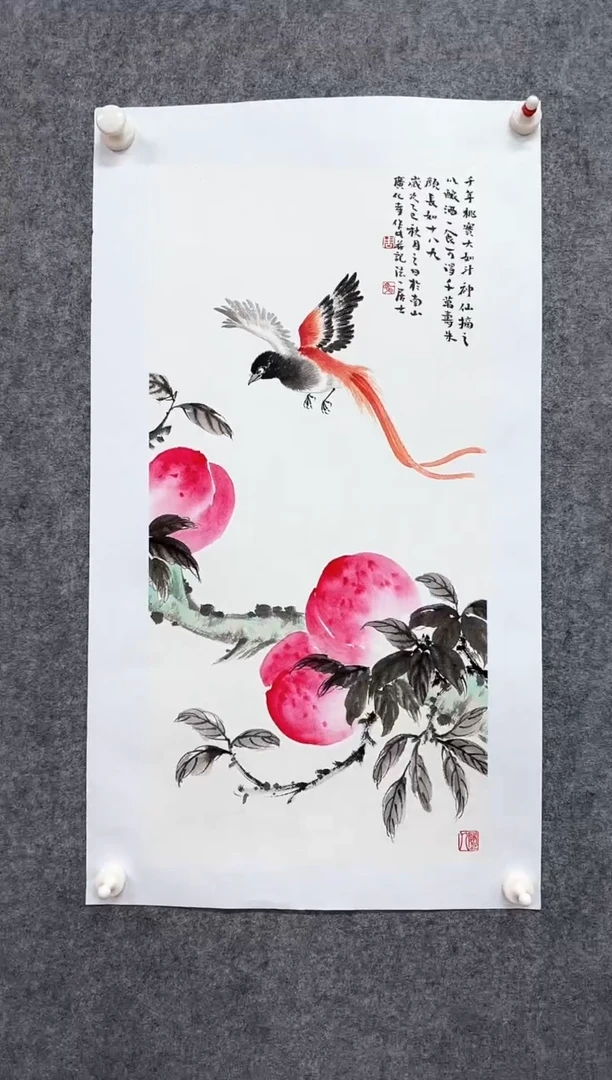 千年桃實大如斗神仙摘之
以釀酒一食可得千萬壽朱
顏長如十八九
歲次乙巳秋月之日於南山
廣化寺作此並記法一居士